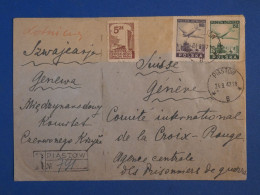 5 ZŁ
POLSKA
POLSKA
Szwajcarja
Suisse
Genewa
Genève
PIASTÓW
Międzynarodowy
Comité international
Komitet
de la Croix-Rouge
Czerwonego Krzyża
Agence centrale
PIASTÓW
des Prisonniers de guerre